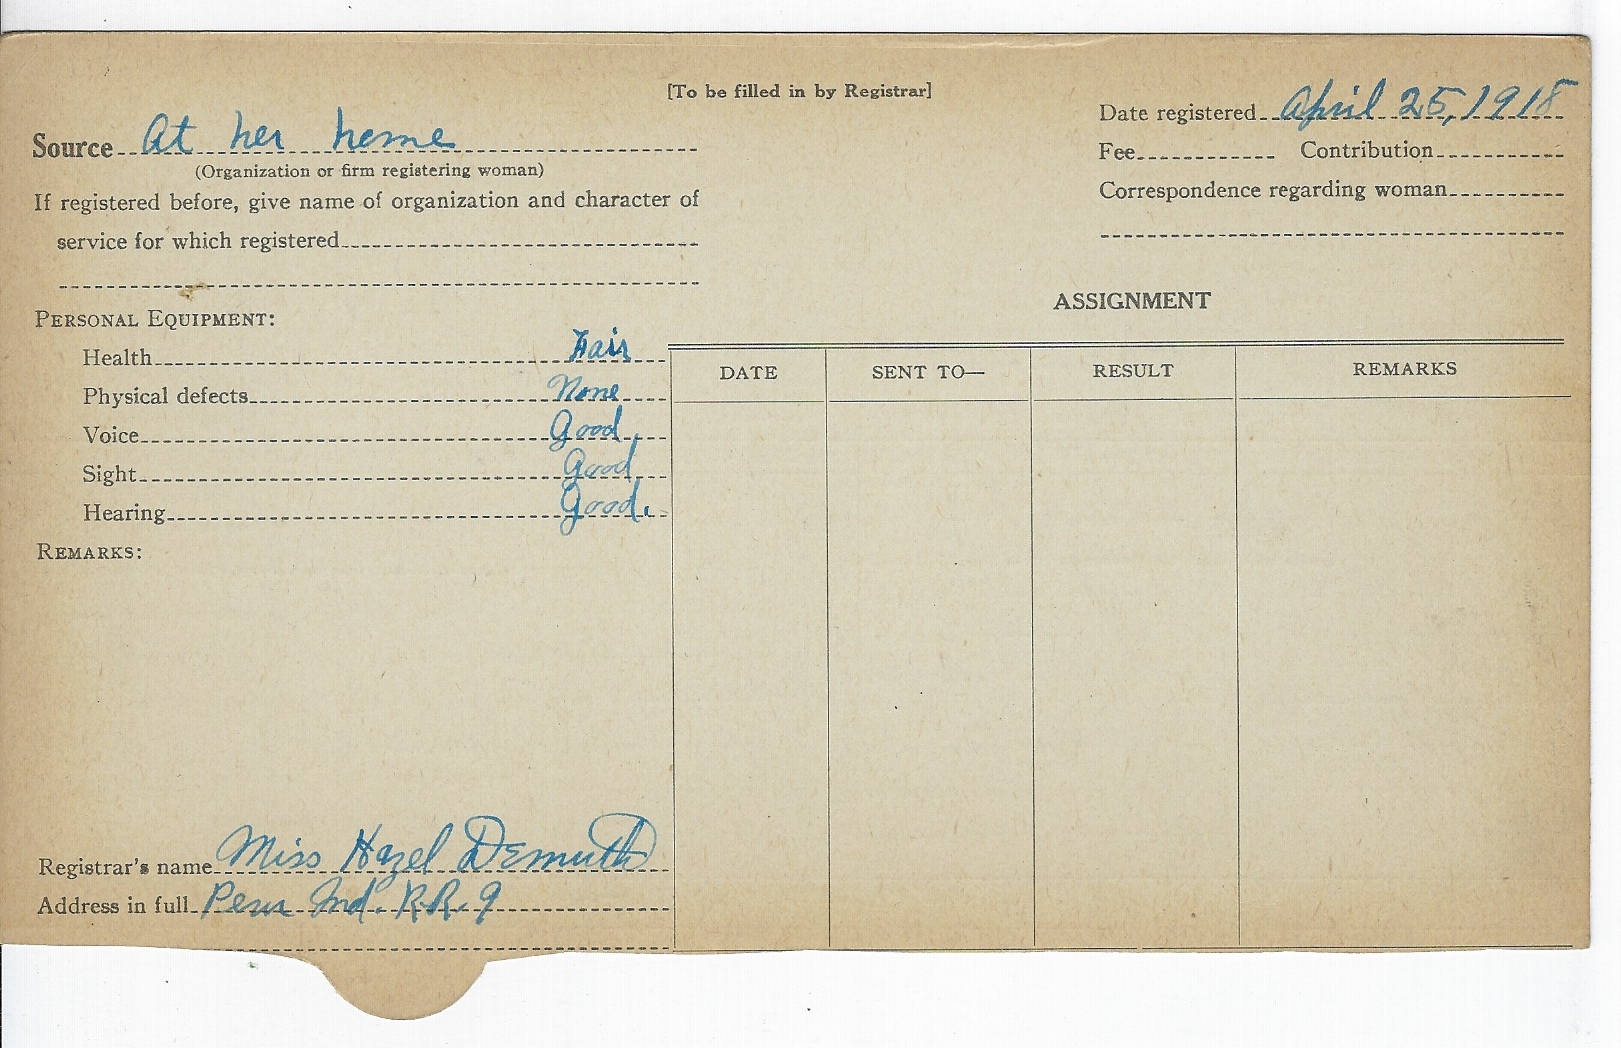 [To be filled in by Registrar]
Source At her home
(Organization or firm registering woman)
If registered before, give name of organization and character of
service for which registered
Date registered April 25, 1918
Fee Contribution
Correspondence regarding woman
PERSONAL EQUIPMENT:
Health Fair
Physical defects None
Voice Good
Sight Good
Hearing Good.
REMARKS:
ASSIGNMENT
DATE SENT TO— RESULT REMARKS
Registrar's name Miss Hazel Demuth
Address in full Peru Ind. R.R. 9